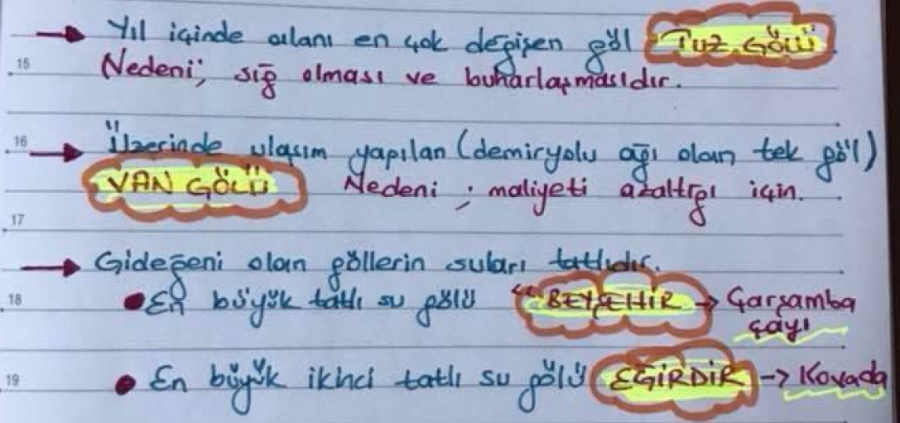 → Yıl içinde alanı en çok değişen göl TUZ GÖLÜ
15 Nedeni; sığ olması ve buharlaşmasıdır.
16 → Üzerinde ulaşım yapılan (demiryolu ağı olan tek göl)
VAN GÖLÜ Nedeni; maliyeti azalttığı için.
17
→ Gideğeni olan göllerin suları tatlıdır.
18 • En büyük tatlı su gölü "BEYŞEHİR → Çarşamba
çayı
19 • En büyük ikinci tatlı su gölü EĞİRDİR → Kovada